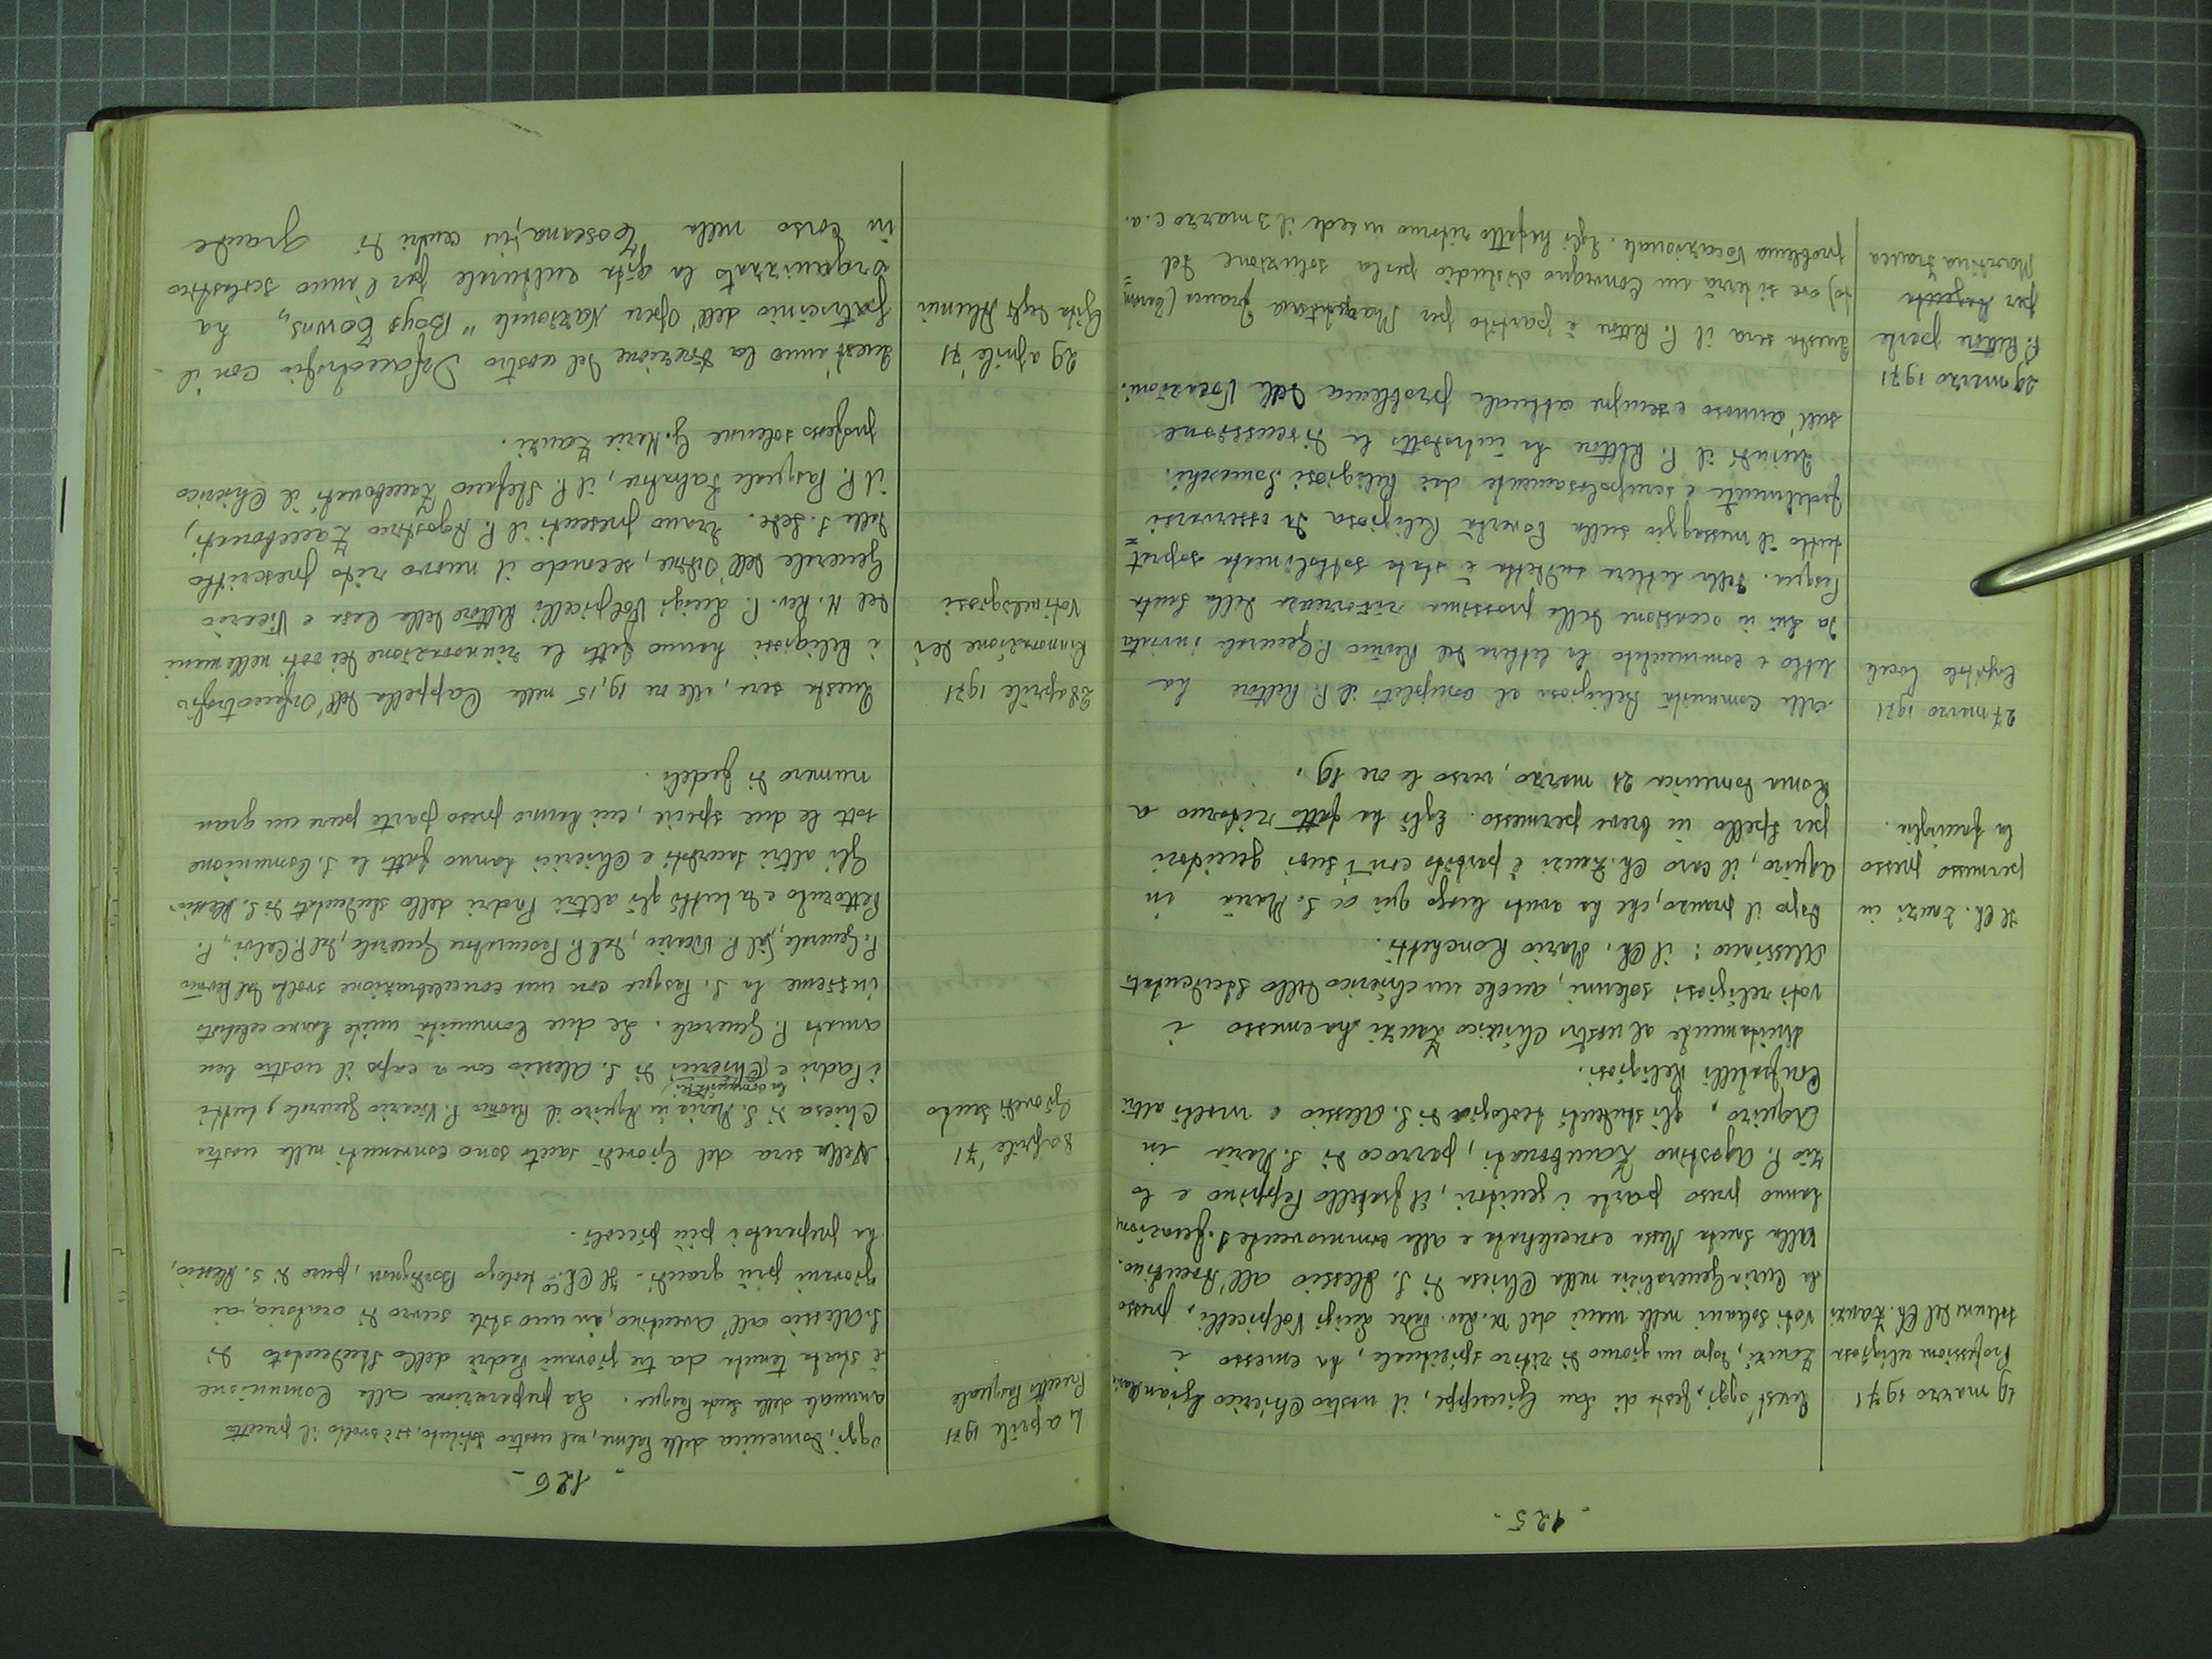 - 125 -
19 marzo 1971
Professione religiosa
solenne del Ch. Zanzi
Quest'oggi, festa di San Giuseppe, il nostro Chierico Gian Maria
Zanzi, dopo un giorno di ritiro spirituale, ha emesso i
voti solenni nelle mani del M. Rev. Padre Luigi Volpicelli, presso
la Curia Generalizia nella Chiesa di S. Alessio all'Aventino.
Alla Santa Messa concelebrata e alla commovente S. funzione
hanno preso parte i genitori, il fratello Peppino e lo
zio P. Agostino Zambonati, parroco di S. Maria in
Aquiro, gli studenti teologia di S. Alessio e molti altri
Confratelli Religiosi.
Unitamente al nostro Chierico Zanzi ha emesso i
voti religiosi solenni, anche un chierico dello Studentato
Alessiano: il Ch. Mario Ronchetti.
Il Ch. Zanzi in
permesso presso
la famiglia.
Dopo il pranzo, che ha avuto luogo qui a S. Maria in
Aquiro, il caro Ch. Zanzi è partito con i suoi genitori
per Spello in breve permesso. Egli ha fatto ritorno a
Roma domenica 21 marzo, verso le ore 19.
27 marzo 1971
Capitolo locale
Alla Comunità Religiosa al completo il P. Rettore ha
letto e commentato la lettera del Rev.mo P. Generale inviata
da lui in occasione della prossima ricorrenza della Santa
Pasqua. Della lettera suddetta è stato sottolineato soprat=
tutto il messaggio sulla Povertà Religiosa da osservarsi
fedelmente e scrupolosamente dai Religiosi Somaschi.
Quindi il P. Rettore ha introdotto la discussione
sull'annoso e sempre attuale problema delle Vocazioni.
29 marzo 1971
P. Rettore parte
per
Martina Franca
Questa sera il P. Rettore è partito per Martina Franca (Taran=
to) ove si terrà un Convegno di studio per la soluzione del
problema Vocazionale. Egli ha fatto ritorno in sede il 3 marzo c.a.
- 126 -
4 aprile 1971
Precetto Pasquale
Oggi, domenica delle Palme, nel nostro Istituto, si è svolto il precetto
annuale della Santa Pasqua. La preparazione alla Comunione
è stata tenuta da tre giovani Padri dello Studentato di
S. Alessio all'Aventino, in uno stile scevro di oratoria, ai
giovani più grandi. Il Ch.co teologo Bordignon, pure di S. Alessio,
ha preparato i più piccoli.
8 aprile '71
Giovedì Santo
Nella sera del Giovedì santo sono convenuti nella nostra
Chiesa di S. Maria in Aquiro il Rev.mo P. Vicario Generale, tutti
i Padri e Chierici di S. Alessio con a capo il nostro ben
amato P. Generale. Le due Comunità unite hanno celebrato
insieme la S. Pasqua con una concelebrazione svolta dal Rev.mo
P. Generale, dal P. Vicario, dal P. Procuratore Generale, dal P. Calvi, P.
Pettoruto e da tutti gli altri Padri dello studentato di S. Alessio.
Gli altri sacerdoti e Chierici hanno fatto la S. Comunione
sotto le due specie, cui hanno preso parte pure un gran
numero di fedeli.
28 aprile 1971
Rinnovazione dei
Voti religiosi
Questa sera, alle ore 19,15 nella Cappella dell'Orfanotrofio
i Religiosi hanno fatto la rinnovazione dei voti nelle mani
del M. Rev. P. Luigi Volpicelli Rettore della Casa e Vicario
Generale dell'Ordine, secondo il nuovo rito prescritto
dalla S. Sede. Erano presenti il P. Agostino Zambonati,
il P. Pasquale Salvatore, il P. Stefano Zambonati il Chierico
professo solenne G. Maria Zanzi.
29 aprile '71
Gita degli Alunni
Quest'anno la direzione del nostro Orfanotrofio con il
patrocinio dell'Opera Nazionale "Boys Towns" ha
organizzato la gita culturale per l'anno scolastico
in corso nella Toscana, in centri di grande